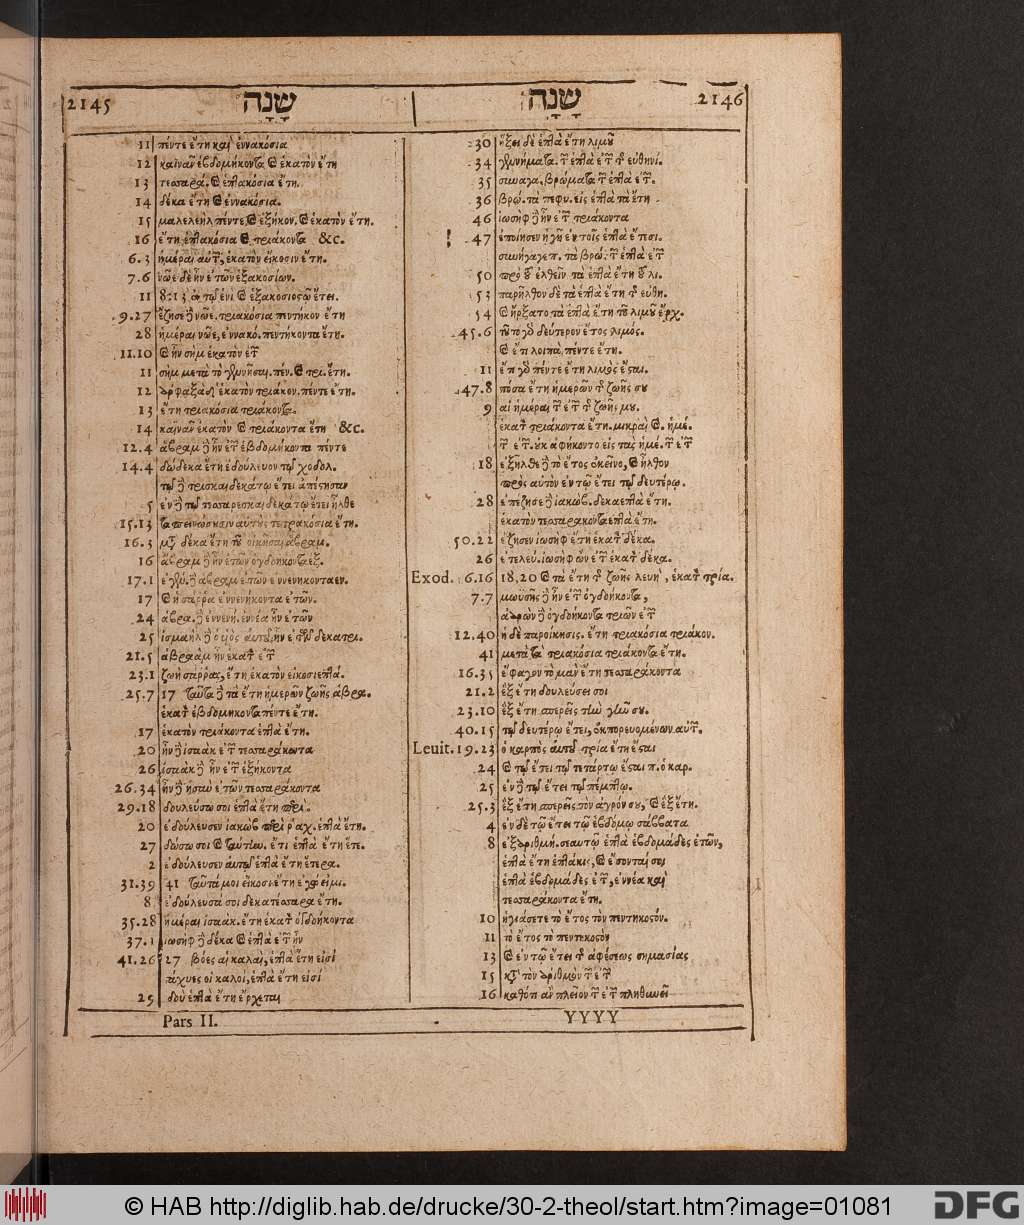 2145 שָׁנָה
11 πέντε ἔτη καὶ ἐννακόσια
12 καϊναν ἑβδομήκοντα ϗ ἑκατὸν ἔτη
13 τεσσαρά. ϗ ἑπτακόσια ἔτη.
14 δέκα ἔτη ϗ ἐννακόσια.
15 μαλελεὴλ πέντε, ϗ ἑξήκον. ϗ ἑκατὸν ἔτη.
16 ἔτη ἑπτακόσια ϗ τριάκοντα &c.
6.3 ἡμέραι αὐτ, ἑκατὸν εἴκοσιν ἔτη.
7.6 νῶε δὲ ἦν ἐτῶν ἑξακοσίων.
11 8:13 ἐν τῷ ἑνὶ ϗ ἑξακοσιοςῷ ἔτει.
9.27 ἔζησε νῶε. τριακόσια πεντήκον ἔτη
28 ἡμέραι νῶε, ἐννακό. πεντήκοντα ἔτη.
11.10 ϗ ἦν σὴμ ἑκατὸν
11 σὴμ μετὰ τὸ πέν. ϗ τρι. ἔτη.
12 ἀρφαξὰδ ἑκατὸν τριάκον. πέντε ἔτη.
13 ἔτη τριακόσια τριάκοντα.
14 καϊνᾶν ἑκατὸν ϗ τριάκοντα ἔτη &c.
12.4 ἄβραμ ἦν ἑβδομήκοντα πέντε
14.4 δώδεκα ἔτη ἐδούλευον τῷ χοδολ.
τῷ τρισκαιδεκάτῳ ἔτει ἀπέςησαν
5 ἐν τῷ τεσσαρεσκαιδεκάτῳ ἔτει ἦλθε
15.13 ταπεινώσουσιν αὐτοὺς τετρακόσια ἔτη.
16.3 δέκα ἔτη οἰκῆσαι ἄβραμ.
16 ἄβραμ ἦν ἐτῶν ὀγδοηκονταέξ.
17.1 ἄβραμ ἐτῶν ἐννενηκονταεν.
17 ϗ ἡ σάρρα ἐννενήκοντα ἐτῶν.
24 ἄβρα. ἐννενή. ἐννέα ἦν ἐτῶν
25 ἰσμαὴλ ὁ υἱὸς αὐτοῦ, ἦν ἐτῶν δεκατρι.
21.5 ἀβραὰμ ἦν ἑκατ
23.1 ζωὴ σάρρας, ἔτη ἑκατὸν εἰκοσιεπτά.
25.7 17 ταῦτα τὰ ἔτη ἡμερῶν ζωῆς ἀβρα.
ἑκατ ἑβδομηκονταπέντε ἔτη.
17 ἑκατὸν τριάκοντα ἑπτὰ ἔτη.
20 ἦν ἰσαὰκ τεσσαράκοντα
26 ἰσαὰκ ἦν ἑξήκοντα
26.34 ἦν ἠσαῦ ἐτῶν τεσσαράκοντα
29.18 δουλεύσω σοι ἑπτὰ ἔτη περὶ.
20 ἐδούλευσεν ἰακὼβ περὶ ῥαχ. ἑπτὰ ἔτη.
27 δώσω σοι ϗ ταύτην. ἔτι ἑπτὰ ἔτη ἕτε.
2 ἐδούλευσεν αὐτῷ ἑπτὰ ἔτη ἕτερα.
31.39 41 ταῦτά μοι εἴκοσι ἔτη ἐγώ εἰμι.
8 ἐδούλευσά σοι δεκατέσσαρα ἔτη.
35.28 ἡμέραι ἰσαὰκ. ἔτη ἑκατ ὀγδοήκοντα
37.1 ἰωσὴφ δέκα ϗ ἑπτὰ ἦν
41.26 27 βόες αἱ καλαὶ, ἑπτὰ ἔτη εἰσί
στάχυες οἱ καλοὶ, ἑπτὰ ἔτη εἰσί
25 ἰδοὺ ἑπτὰ ἔτη ἔρχεται
Pars II.
שָׁנָה 2146
30 ἥξει δὲ ἑπτὰ ἔτη λιμοῦ
34 γεννήματα. ἑπτὰ εὐθηνί.
35 συναγα. βρώματα ἑπτὰ
36 βρώ. τὰ πεφυ. εἰς ἑπτὰ τὰ ἔτη
46 ἰωσὴφ ἦν τριάκοντα
47 ἐποίησεν ἡ γῆ ἐν τοῖς ἑπτὰ ἔτεσι.
συνήγαγε π. τὰ βρώ. ἑπτὰ
50 πρὸ ἐλθεῖν τὰ ἑπτὰ ἔτη λι.
53 παρῆλθον δὲ τὰ ἑπτὰ ἔτη εὐθη.
54 ϗ ἤρξατο τὰ ἑπτὰ ἔτη τοῦ λιμοῦ ἔρχ.
45.6 τοῦτο γὸ δεύτερον ἔτος λιμός.
ϗ ἔτι λοιπὰ, πέντε ἔτη.
11 ἔτι πέντε ἔτη λιμὸς ἔςαι.
47.8 πόσα ἔτη ἡμερῶν ζωῆς σου
9 αἱ ἡμέραι ζωῆς μου.
ἑκατ τριάκοντα ἔτη. μικραὶ ϗ. ἡμέ.
οὐκ ἀφήκοντο εἰς τὰς ἡμέ.
18 ἐξῆλθε τὸ ἔτος ἐκεῖνο, ϗ ἦλθον
πρὸς αὐτὸν ἐν τῷ ἔτει τῷ δευτέρῳ.
28 ἐπέζησε ἰακωβ. δεκαεπτὰ ἔτη.
ἑκατὸν τεσσαρακονταεπτὰ ἔτη.
50.22 ἔζησεν ἰωσὴφ ἔτη ἑκατ δέκα.
26 ἐτελευ. ἰωσὴφ ὢν ἑκατ δέκα.
Exod. 6.16 18,20 ϗ τὰ ἔτη ζωῆς λευὶ, ἑκατ τρία.
7.7 μωϋσῆς ἦν ὀγδοήκοντα,
ἀαρὼν ὀγδοήκοντα τριῶν
12.40 ἡ δὲ παροίκησις. ἔτη τριακόσια τριάκον.
41 μετὰ τὰ τριακόσια τριάκοντα ἔτη.
16.35 ἔφαγον τὸ μὰν ἔτη τεσσαράκοντα
21.2 ἓξ ἔτη δουλεύσει σοι
23.10 ἓξ ἔτη σπερεῖς τὴν γῆν σου.
40.15 τῷ δευτέρῳ ἔτει, ἐκπορευομένων αὐτ.
Leuit. 19.23 ὁ καρπὸς αὐτοῦ τρία ἔτη ἔςαι
24 ϗ τῷ ἔτει τῷ τετάρτῳ ἔςαι π. ὁ καρ.
25 ἐν τῷ ἔτει τῷ πέμπτῳ.
25.3 ἓξ ἔτη σπερεῖς τὸν ἀγρόν σου, ϗ ἓξ ἔτη.
4 ἐν δὲ τῷ ἔτει τῷ ἑβδόμῳ σάββατα
8 ἐξαριθμή. σεαυτῷ ἑπτὰ ἑβδομάδες ἐτῶν,
ἑπτὰ ἔτη ἑπτάκις, ϗ ἔσονταί σοι
ἑπτὰ ἑβδομάδες, ἐννέα καὶ
τεσσαράκοντα ἔτη.
10 ἁγιάσετε τὸ ἔτος τὸν πεντηκοςόν.
11 τὸ ἔτος τὸ πεντηκοςὸν
13 ϗ ἐν τῷ ἔτει ἀφέσεως σημασίας
15 τὸν ἀριθμὸν
16 καθότι ἂν πλεῖον πληθυνεῖ
YYYY
© HAB http://diglib.hab.de/drucke/30-2-theol/start.htm?image=01081
DFG